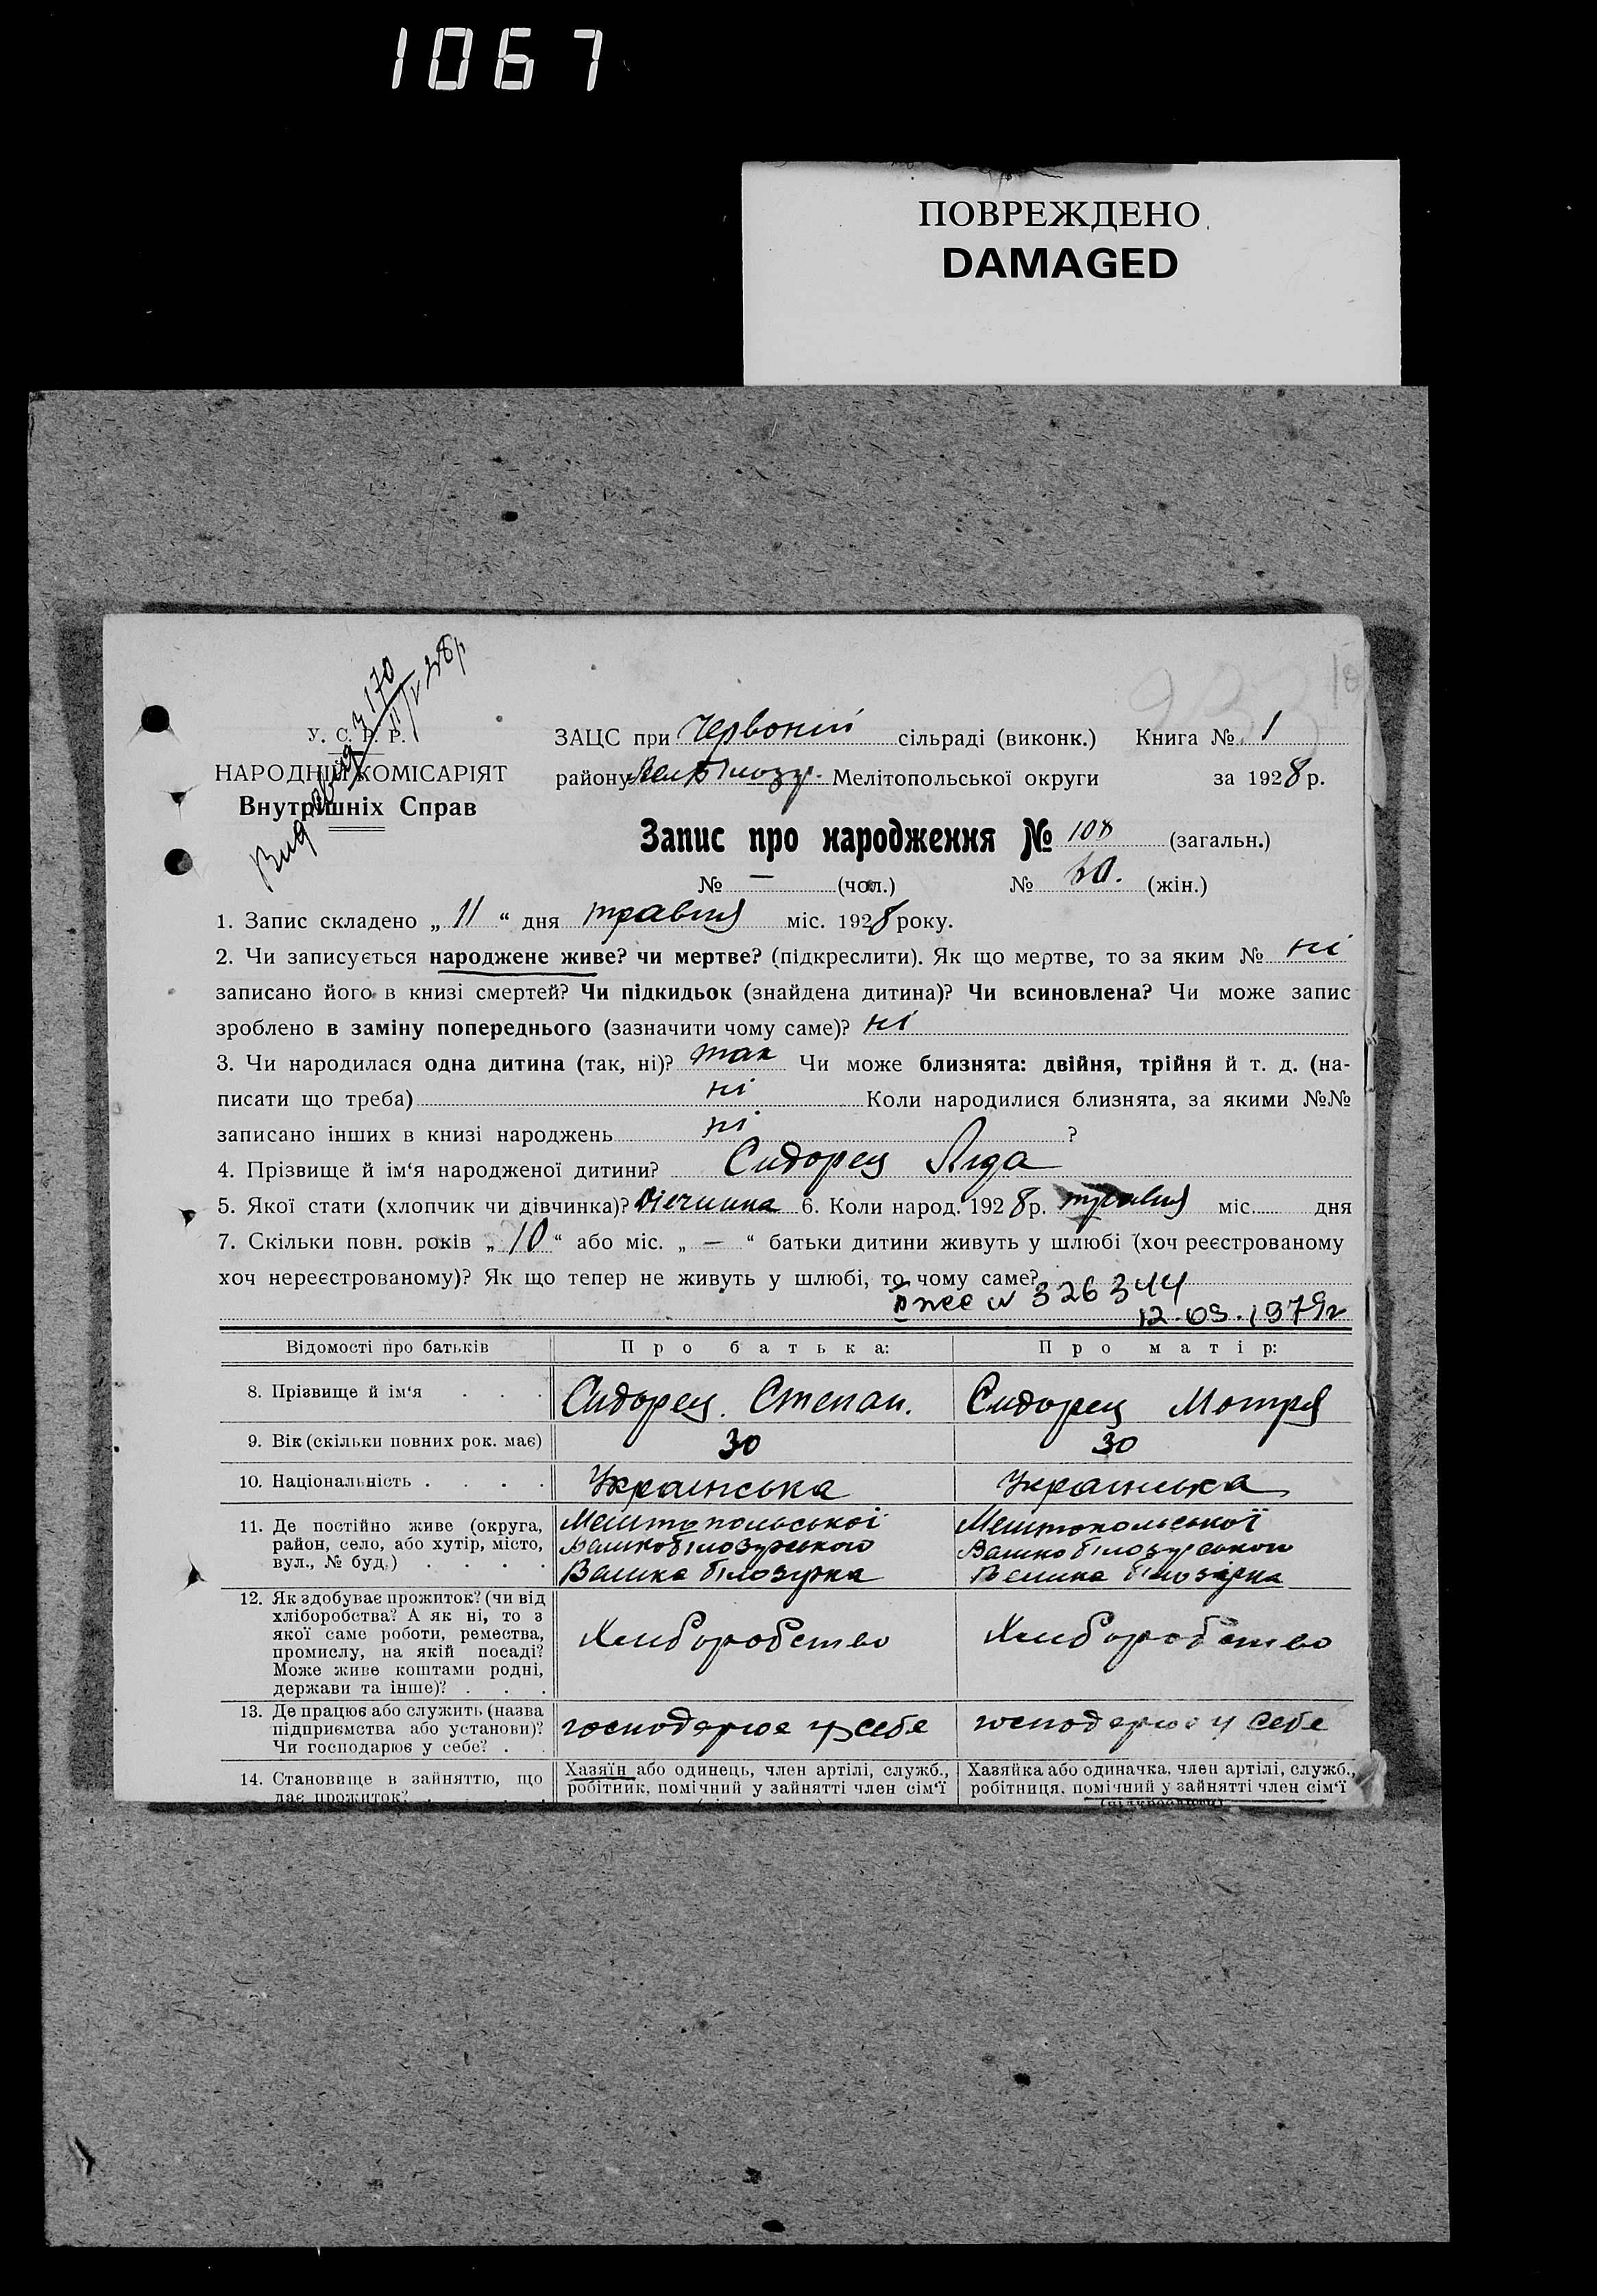 1067
ПОВРЕЖДЕНО
DAMAGED
170
11/V 28р
У. С. Р. Р.
НАРОДНІЙ КОМІСАРІЯТ
Внутрішніх Справ
ЗАЦС при Червоній сільраді (виконк.) Книга № 1
району Вел Білозур. Мелітопольської округи за 1928 р.
Запис про народження № 108 (загальн.)
№ — (чол.) № 60. (жін.)
1. Запис складено „ 11 “ дня травня міс. 1928 року.
2. Чи записується народжене живе? чи мертве? (підкреслити). Як що мертве, то за яким № ні
записано його в книзі смертей? Чи підкидьок (знайдена дитина)? Чи всиновлена? Чи може запис
зроблено в заміну попереднього (зазначити чому саме)? ні
3. Чи народилася одна дитина (так, ні)? так Чи може близнята: двійня, трійня й т. д. (на-
писати що треба) ні Коли народилися близнята, за якими №№
записано інших в книзі народжень ні ?
4. Прізвище й ім‘я народженої дитини? Сидорец Ліда
5. Якої стати (хлопчик чи дівчинка)? Дівчинка 6. Коли народ. 1928 р. травня міс. дня
7. Скільки повн. років „ 10 “ або міс. „ — “ батьки дитини живуть у шлюбі (хоч реєстрованому
хоч нереєстрованому)? Як що тепер не живуть у шлюбі, то чому саме?
№ 326344
12.09.1979г
Відомості про батьків Про батька: Про матір:
8. Прізвище й ім‘я . . . Сидорец. Степан. Сидорец Мотря
9. Вік (скільки повних рок. має) 30 30
10. Національність . . . . Українська Українська
11. Де постійно живе (округа, Мелітопольської Мелітопольської
район, село, або хутір, місто, Великобілозурського Великобілозурського
вул., № буд.) . . . . Велика білозурка Велика білозірка
12. Як здобуває прожиток? (чи від
хліборобства? А як ні, то з
якої саме роботи, ремества, Хліборобство Хліборобство
промислу, на якій посаді?
Може живе коштами родні,
держави та інше)? . . .
13. Де працює або служить (назва
підприємства або установи)? господарює у себе господарює у себе
Чи господарює у себе? .
14. Становище в зайняттю, що Хазяїн або одинець, член артілі, служб., Хазяйка або одиначка, член артілі, служб.,
дає прожиток? робітник, помічний у зайнятті член сім‘ї робітниця, помічний у зайнятті член сім‘ї
(підкреслити)